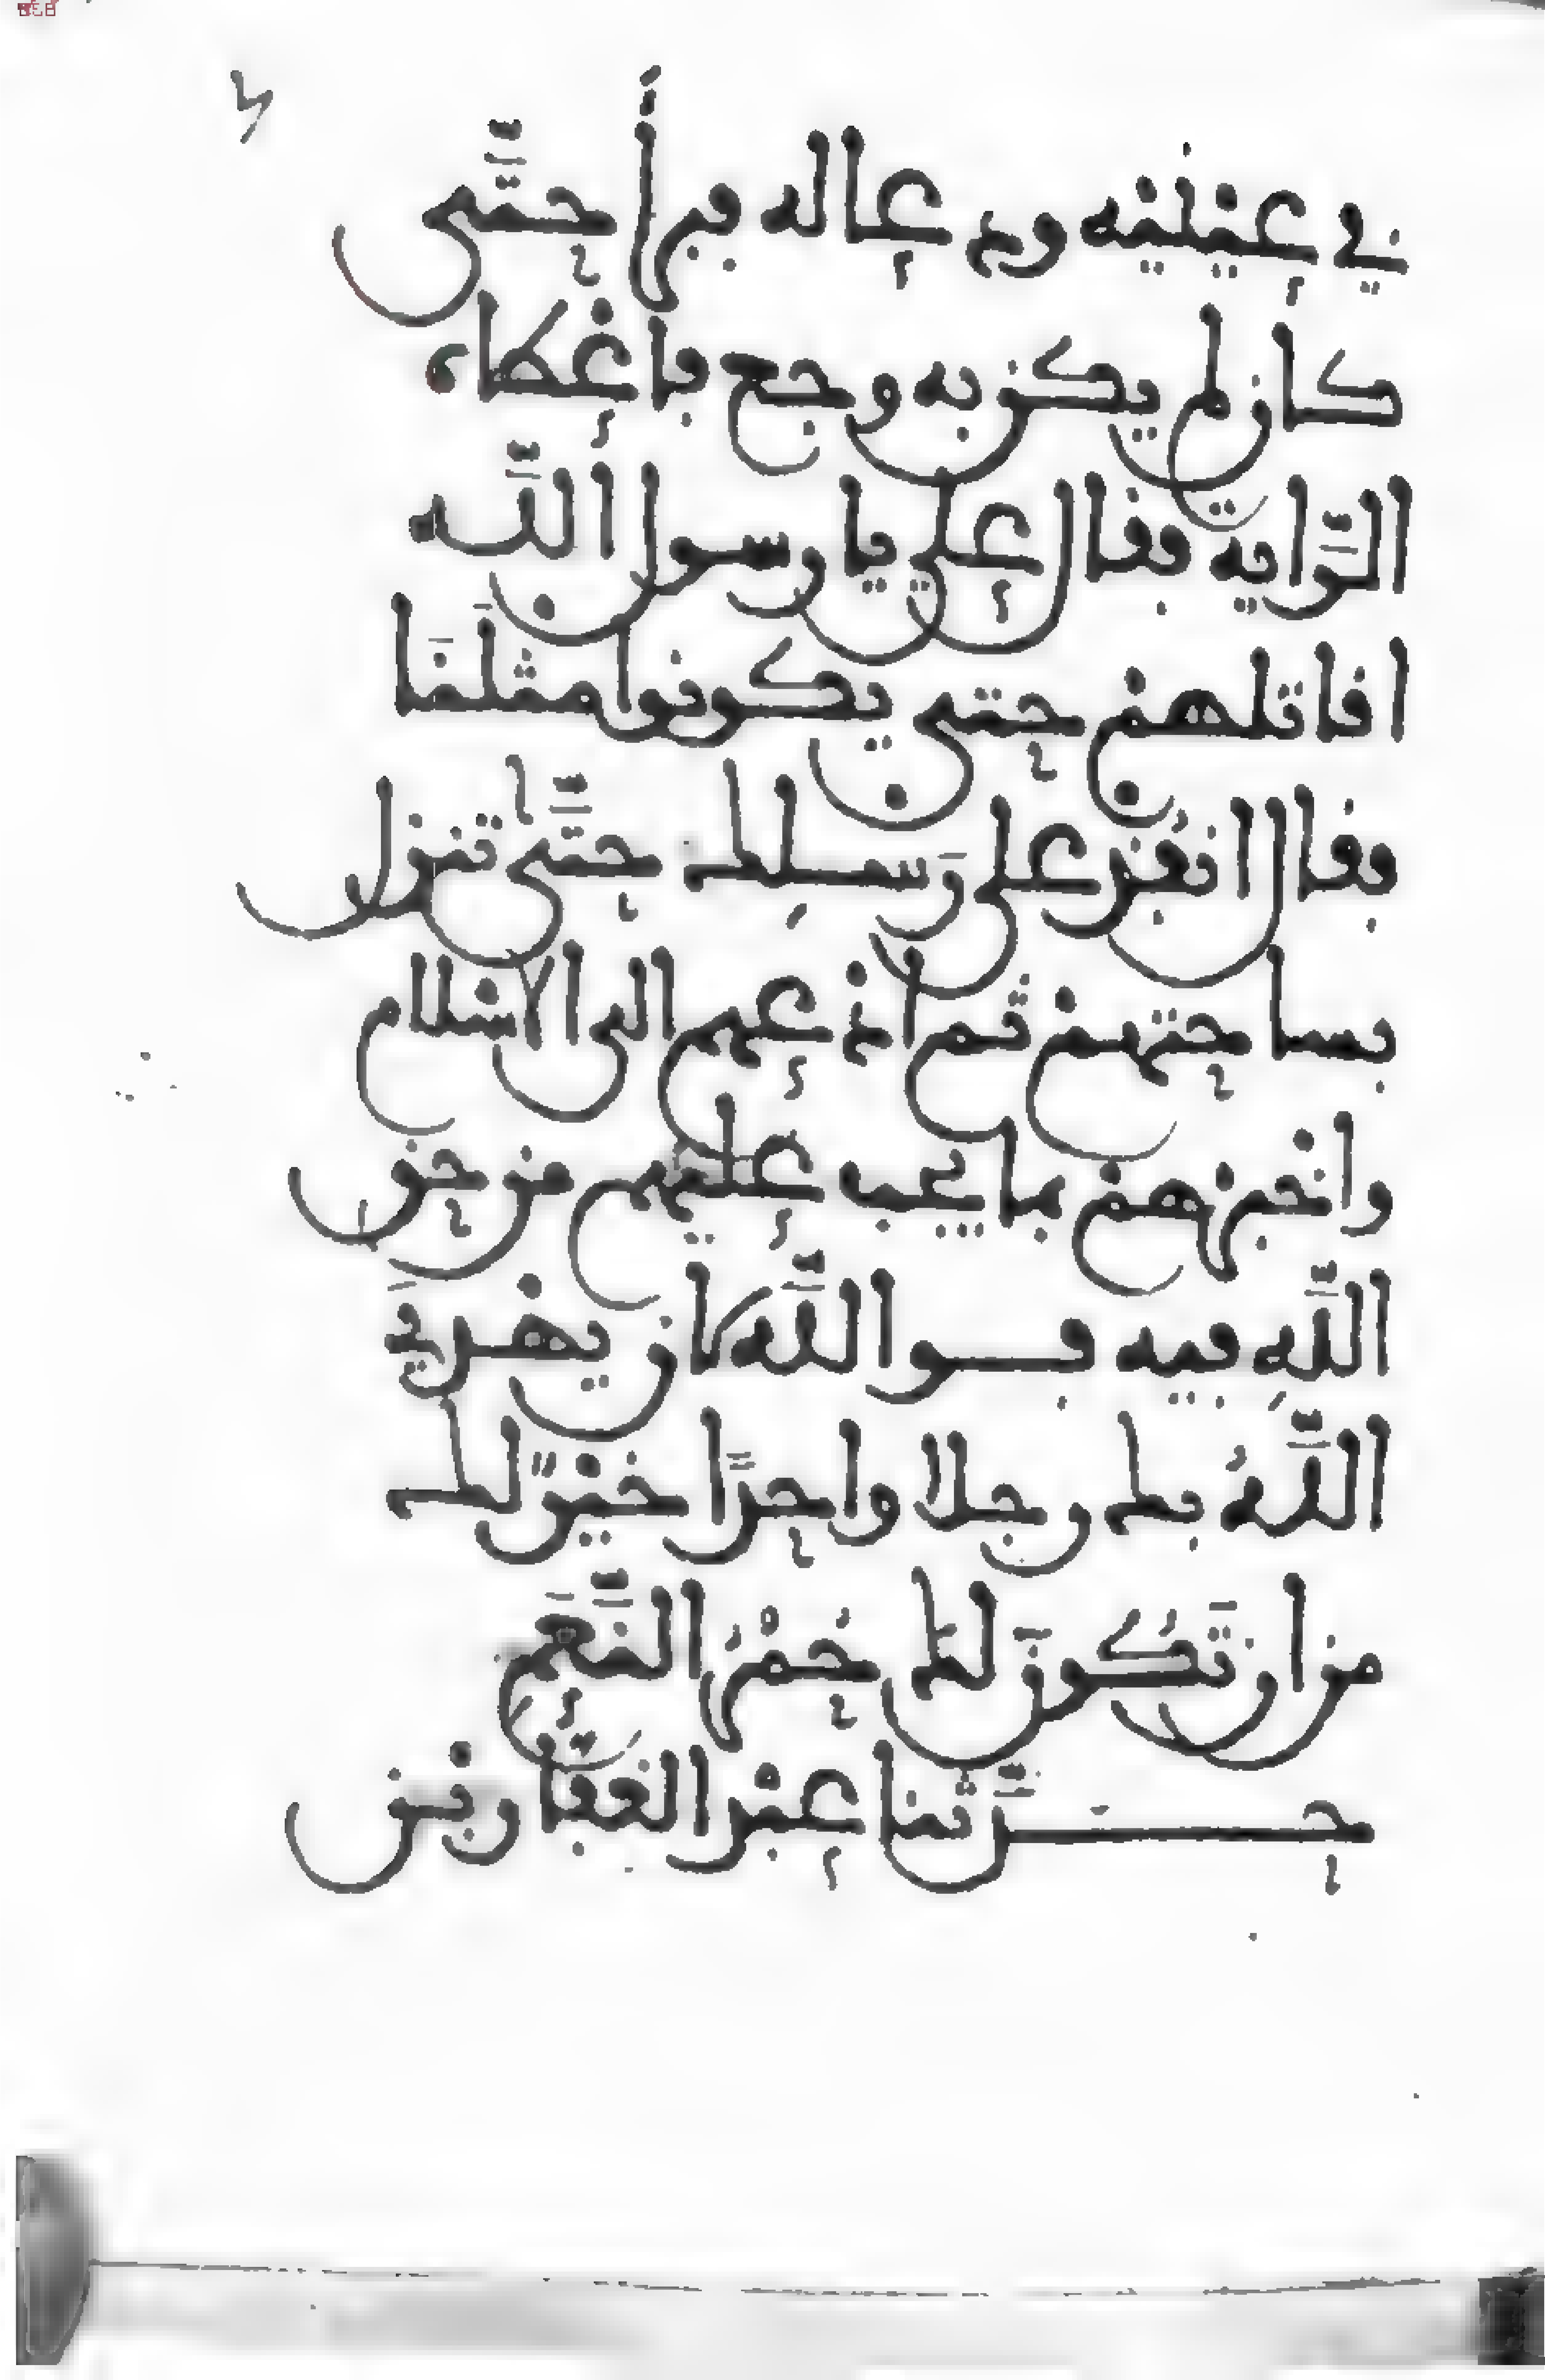 في عينيه ودعا له فبرأ حتّى
كان لم يكن به وجع فاعطاه
الرّاية فقال علي يا رسول اللّه
اقاتلهم حتى يكونوا مثلنا
فقال انفذ على رسلك حتّى تنزل
بساحتهم ثم ادعهم الى الاسلام
واخبرهم بما يجب عليهم من حق
اللّه فيه فوالله كان يهدي
اللّهُ بك رجلا واحدًا خيرٌ لك
من ان تكون لك حُمْرُ النَّعم
حدّثنا عبد الغفّار بن